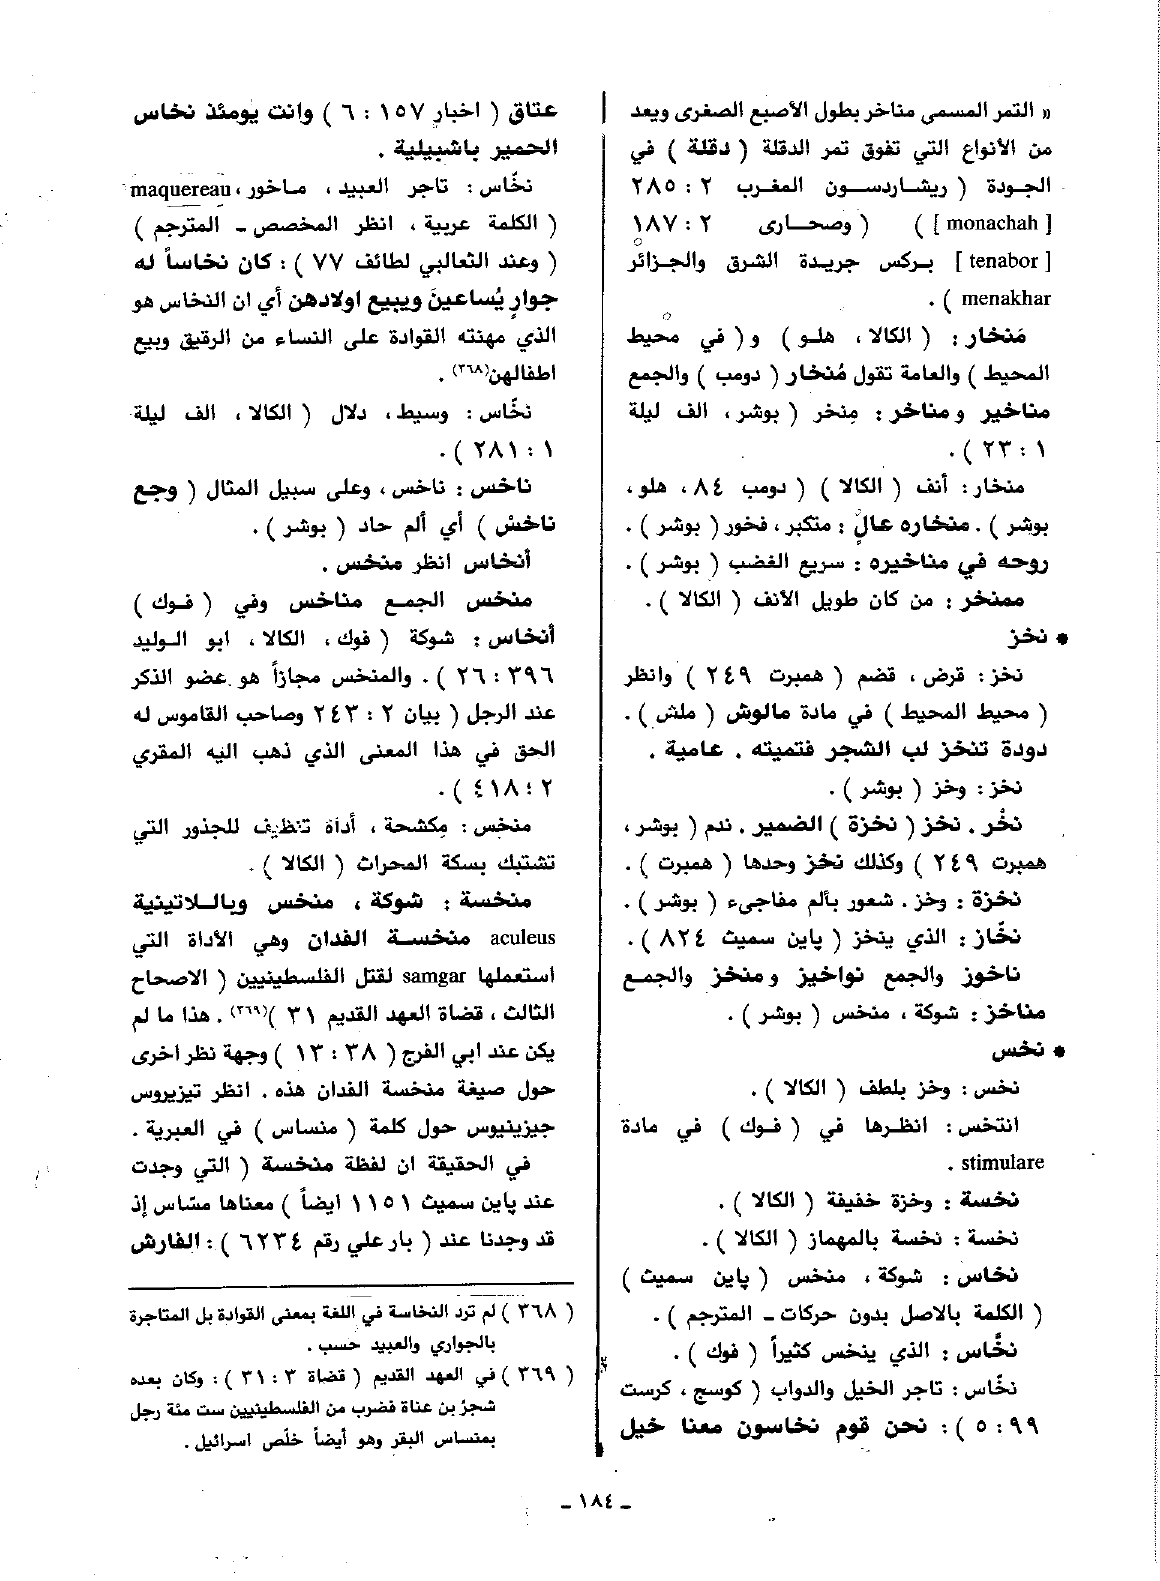 « التمر المسمى مناخر بطول الأصبع الصغرى ويعد
من الأنواع التي تفوق تمر الدقلة ( دقلة ) في
الجودة ( ريشاردسون المغرب ٢ : ٢٨٥
[ monachah ] ) ( وصحارى ٢ : ١٨٧
[ tenabor ] بركس جريدة الشرق والجزائر
menakhar ) .
مَنخار : ( الكالا ، هلو ) و( في محيط
المحيط ) والعامة تقول مُنخار ( دومب ) والجمع
مناخير ومناخر : مِنخر ( بوشر ، الف ليلة
١ : ٢٣ ) .
منخار : أنف ( الكالا ) ( دومب ٨٤ ، هلو ،
بوشر ) . منخاره عالٍ : متكبر ، فخور ( بوشر ) .
روحه في مناخيره : سريع الغضب ( بوشر ) .
ممنخر : من كان طويل الأنف ( الكالا ) .
* نخز
نخز : قرض ، قضم ( همبرت ٢٤٩ ) وانظر
( محيط المحيط ) في مادة مالوش ( ملش ) .
دودة تنخز لب الشجر فتميته . عامية .
نخز : وخز ( بوشر ) .
نخُر . نخز ( نخزة ) الضمير . ندم ( بوشر ،
همبرت ٢٤٩ ) وكذلك نخز وحدها ( همبرت ) .
نخزة : وخز . شعور بألم مفاجىء ( بوشر ) .
نخَّاز : الذي ينخز ( پاين سميث ٨٢٤ ) .
ناخوز والجمع نواخيز ومنخز والجمع
مناخز : شوكة ، منخس ( بوشر ) .
* نخس
نخس : وخز بلطف ( الكالا ) .
انتخس : انظرها في ( فوك ) في مادة
stimulare .
نخسة : وخزة خفيفة ( الكالا ) .
نخسة : نخسة بالمهماز ( الكالا ) .
نخاس : شوكة ، منخس ( پاين سميث )
( الكلمة بالاصل بدون حركات - المترجم ) .
نخَّاس : الذي ينخس كثيراً ( فوك ) .
نخَّاس : تاجر الخيل والدواب ( كوسج ، كرست
٩٩ : ٥ ) : نحن قوم نخاسون معنا خيل
عتاق ( اخبار ١٥٧ : ٦ ) وانت يومئذ نخاس
الحمير باشبيلية .
نخَّاس : تاجر العبيد ، ماخور ، maquereau
( الكلمة عربية ، انظر المخصص - المترجم )
( وعند الثعالبي لطائف ٧٧ ) : كان نخاساً له
جوارٍ يُساعين ويبيع اولادهن أي ان النخاس هو
الذي مهنته القوادة على النساء من الرقيق وبيع
اطفالهن(٣٦٨) .
نخَّاس : وسيط ، دلال ( الكالا ، الف ليلة
١ : ٢٨١ ) .
ناخس : ناخس ، وعلى سبيل المثال ( وجع
ناخش ) أي ألم حاد ( بوشر ) .
أنخاس انظر منخس .
منخس الجمع مناخس وفي ( فوك )
أنخاس : شوكة ( فوك ، الكالا ، ابو الوليد
٣٩٦ : ٢٦ ) . والمنخس مجازاً هو عضو الذكر
عند الرجل ( بيان ٢ : ٢٤٣ وصاحب القاموس له
الحق في هذا المعنى الذي ذهب اليه المقري
٢ : ٤١٨ ) .
منخس : مِكشحة ، أداة تنظيف للجذور التي
تشتبك بسكة المحراث ( الكالا ) .
منخسة : شوكة ، منخس وباللاتينية
aculeus منخسة الفدان وهي الأداة التي
استعملها samgar لقتل الفلسطينيين ( الاصحاح
الثالث ، قضاة العهد القديم ٣١ )(٣٦٩) . هذا ما لم
يكن عند ابي الفرج ( ٣٨ : ١٣ ) وجهة نظر اخرى
حول صيغة منخسة الفدان هذه . انظر تيزيروس
جيزينيوس حول كلمة ( منساس ) في العبرية .
في الحقيقة ان لفظة منخسة ( التي وجدت
عند پاين سميث ١١٥١ ايضاً ) معناها مسّاس إذ
قد وجدنا عند ( بار علي رقم ٦٢٣٤ ) : الفارش
( ٣٦٨ ) لم ترد النخاسة في اللغة بمعنى القوادة بل المتاجرة
بالجواري والعبيد حسب .
( ٣٦٩ ) في العهد القديم ( قضاة ٣ : ٣١ ) : وكان بعده
شمجرُ بن عناة فضرب من الفلسطينيين ست مئة رجل
بمنساس البقر وهو أيضاً خلّص اسرائيل .
ـ ١٨٤ ـ